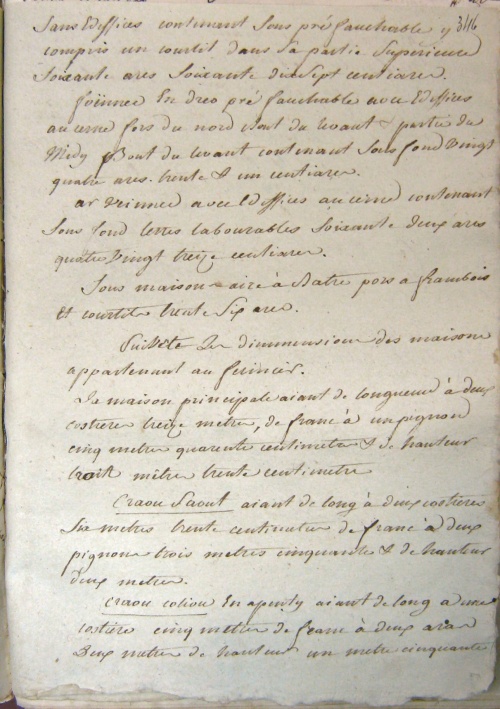 3116
Sans Edeffices contenant sous pré fauchable y
compris un courtil dans sa partie Supérieure
Soixante ares Soixante dix Sept centiares.
foënnec En dreo pré fauchable avec Edeffices
au cerné fors du nord Bout du levant & partie du
Midy Bout du levant contenant sous fond vingt
quatre ares trente & un centiares.
ar avec Edeffices au cerné contenant
sous fond terres labourables Soixante deux ares
quatre vingt treize centiares.
Sous maison aire à Batre pors a frambois
Et courtils trente Six ares.
Suivent les dimmensions des maisons
appartenant au fermier.
La maison principale aiant de longueur à deux
costières treize metres, de franc à un pignon
cinq metres quarente centimetres & de hauteur
trois mètres trente centimetres
Craou Saout aiant de long à deux costières
Six metres trente centimetres de franc à deux
pignons trois metres cinquante & de hauteur
deux metres.
Craou En apenty aiant de long à une
costière cinq metres de franc à deux
Deux metres de hauteur un metre cinquante